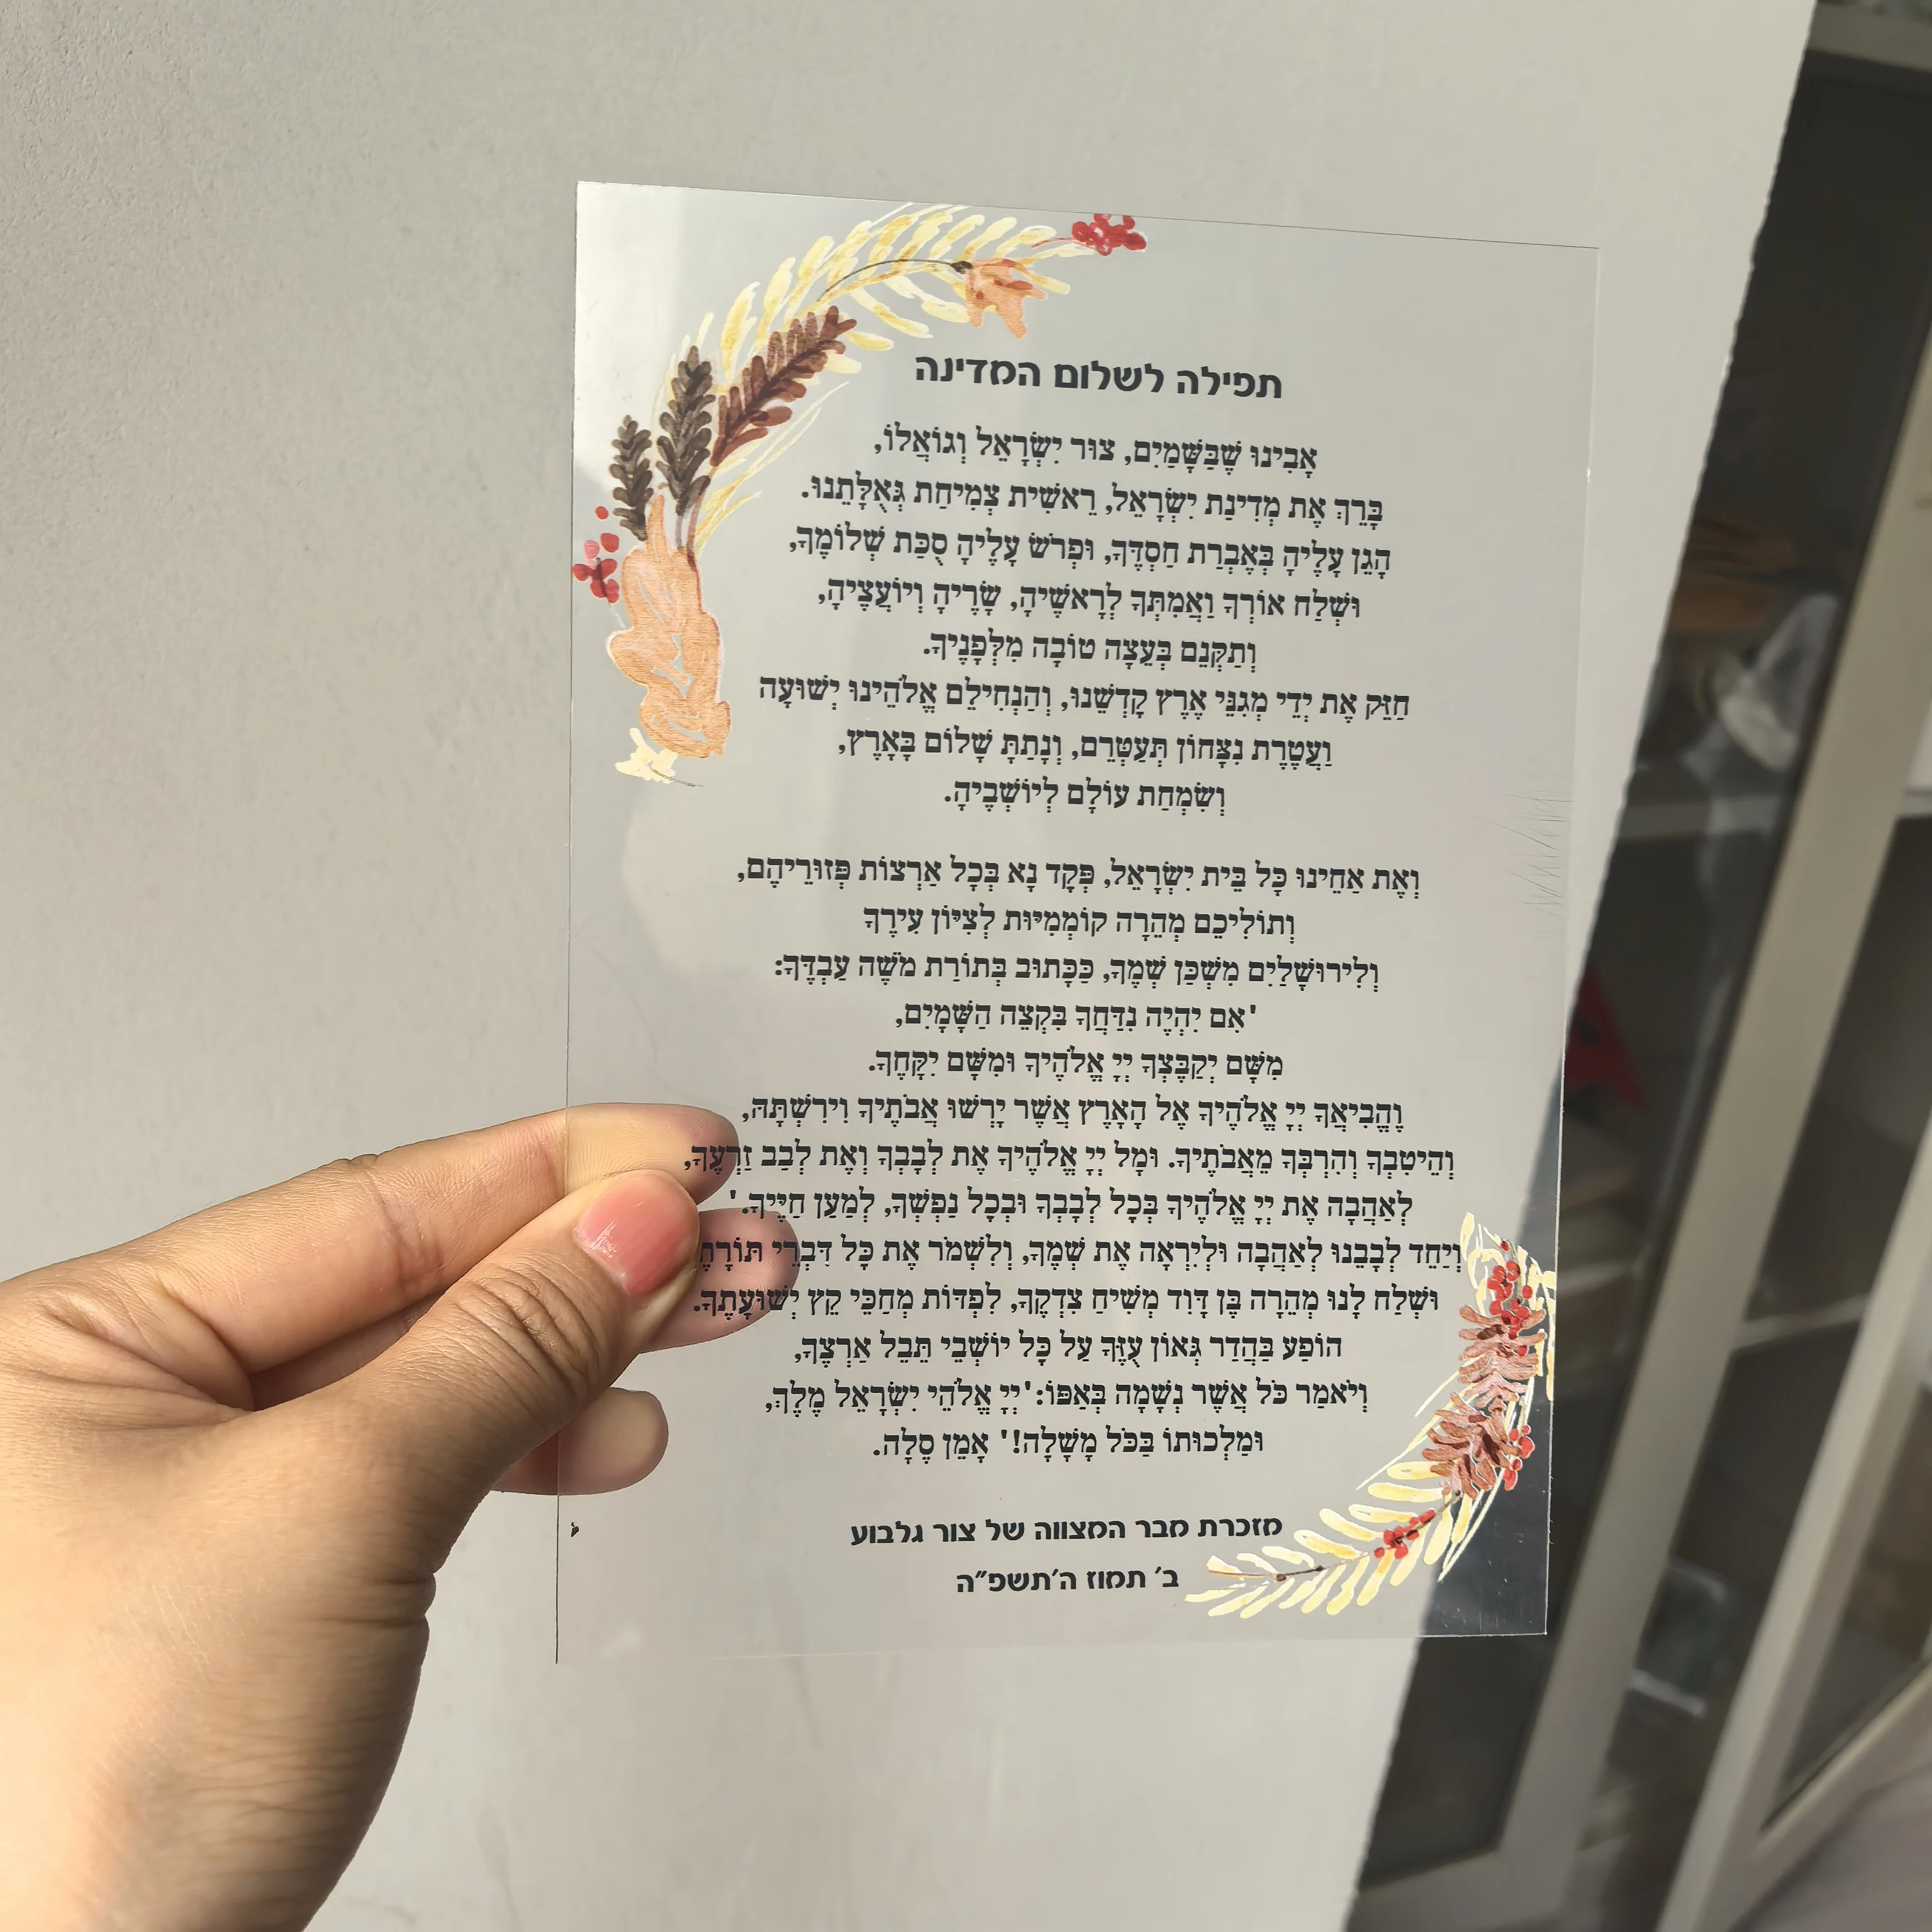 תפילה לשלום המדינה
אָבִינוּ שֶׁבַּשָּׁמַיִם, צוּר יִשְׂרָאֵל וְגוֹאֲלוֹ,
בָּרֵךְ אֶת מְדִינַת יִשְׂרָאֵל, רֵאשִׁית צְמִיחַת גְּאֻלָּתֵנוּ.
הָגֵן עָלֶיהָ בְּאֶבְרַת חַסְדֶּךָ, וּפְרֹשׂ עָלֶיהָ סֻכַּת שְׁלוֹמֶךָ,
וּשְׁלַח אוֹרְךָ וַאֲמִתְּךָ לְרָאשֶׁיהָ, שָׂרֶיהָ וְיוֹעֲצֶיהָ,
וְתַקְּנֵם בְּעֵצָה טוֹבָה מִלְּפָנֶיךָ.
חַזֵּק אֶת יְדֵי מְגִנֵּי אֶרֶץ קָדְשֵׁנוּ, וְהַנְחִילֵם אֱלֹהֵינוּ יְשׁוּעָה
וַעֲטֶרֶת נִצָּחוֹן תְּעַטְּרֵם, וְנָתַתָּ שָׁלוֹם בָּאָרֶץ,
וְשִׂמְחַת עוֹלָם לְיוֹשְׁבֶיהָ.
וְאֶת אַחֵינוּ כָּל בֵּית יִשְׂרָאֵל, פְּקָד נָא בְּכָל אַרְצוֹת פְּזוּרֵיהֶם,
וְתוֹלִיכֵם מְהֵרָה קוֹמְמִיּוּת לְצִיּוֹן עִירֶךָ
וְלִירוּשָׁלַיִם מִשְׁכַּן שְׁמֶךָ, כַּכָּתוּב בְּתוֹרַת מֹשֶׁה עַבְדֶּךָ:
'אִם יִהְיֶה נִדַּחֲךָ בִּקְצֵה הַשָּׁמָיִם,
מִשָּׁם יְקַבֶּצְךָ יְיָ אֱלֹהֶיךָ וּמִשָּׁם יִקָּחֶךָ.
וֶהֱבִיאֲךָ יְיָ אֱלֹהֶיךָ אֶל הָאָרֶץ אֲשֶׁר יָרְשׁוּ אֲבֹתֶיךָ וִירִשְׁתָּהּ,
וְהֵיטִבְךָ וְהִרְבְּךָ מֵאֲבֹתֶיךָ. וּמָל יְיָ אֱלֹהֶיךָ אֶת לְבָבְךָ וְאֶת לְבַב זַרְעֶךָ,
לְאַהֲבָה אֶת יְיָ אֱלֹהֶיךָ בְּכָל לְבָבְךָ וּבְכָל נַפְשְׁךָ, לְמַעַן חַיֶּיךָ.'
וְיַחֵד לְבָבֵנוּ לְאַהֲבָה וּלְיִרְאָה אֶת שְׁמֶךָ, וְלִשְׁמֹר אֶת כָּל דִּבְרֵי
וּשְׁלַח לָנוּ מְהֵרָה בֶּן דָּוִד מְשִׁיחַ צִדְקֶךָ, לִפְדּוֹת מְחַכֵּי קֵץ יְשׁוּעָתֶךָ.
הוֹפַע בַּהֲדַר גְּאוֹן עֻזֶּךָ עַל כָּל יוֹשְׁבֵי תֵּבֵל אַרְצֶךָ,
וְיֹאמַר כֹּל אֲשֶׁר נְשָׁמָה בְּאַפּוֹ: 'יְיָ אֱלֹהֵי יִשְׂרָאֵל מֶלֶךְ,
וּמַלְכוּתוֹ בַּכֹּל מָשָׁלָה!' אָמֵן סֶלָה.
מזכרת מבר המצווה של צור גלבוע
ב׳ תמוז ה׳תשפ״ה